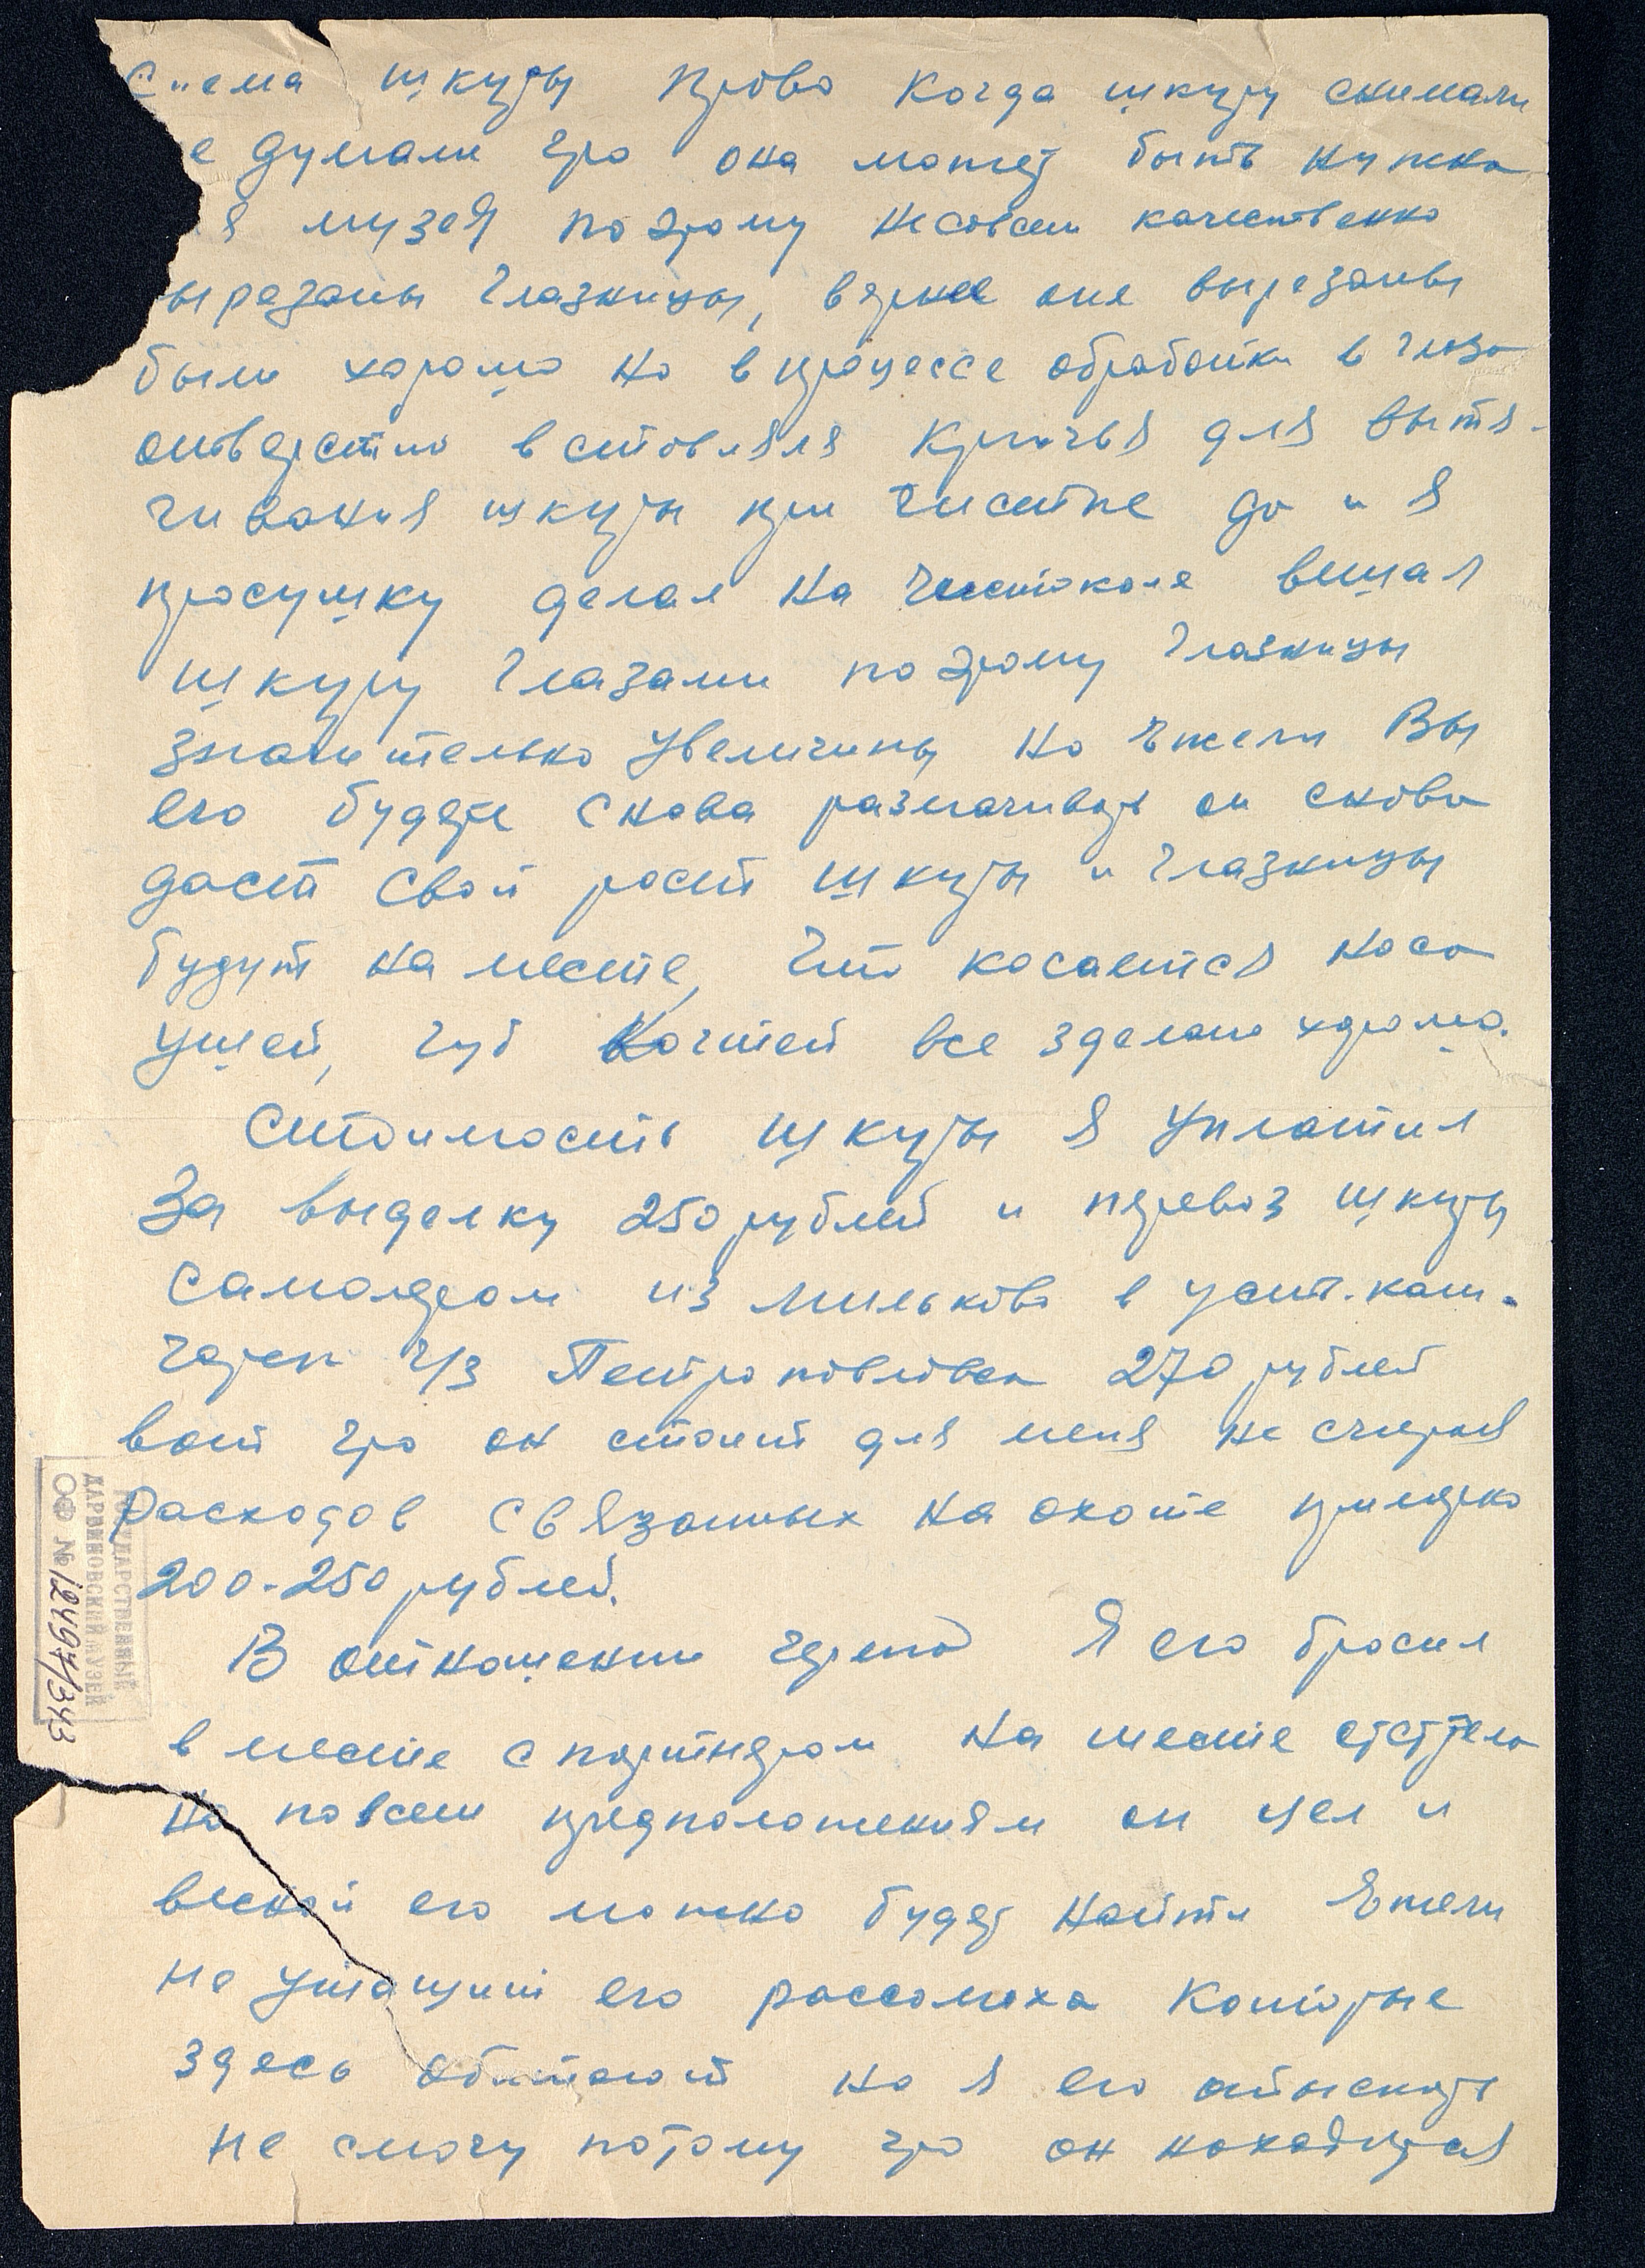 сьема шкуры право когда шкуру снимали
е думали что она может быть нужна
я музея поэтому несовсем качественно
ырезаны глазницы, верное оне вырезаны
были хорошо но в процессе обработки в глазо
отверстие вставляля крючья для вытя-
гивания шкуры при чистке да и я
просушку делал на частоколе вешал
шкуру глазами поэтому глазницы
значительно увеличины но ежели Вы
его будете снова размачивать он снова
даст свой рост шкуры и глазницы
будут на месте, что касается носа
ушей, губ Когтей все зделано хорошо.
Стоимость шкуры я уплатил
За выделку 250 рублей и перевоз шкуры
самолетом из Мильково в усть.кам-
чатск ч/з Петропавловск 270 рублей
вот что он стоит для меня не считая
расходов связанных на охоте примерно
200-250 рублей.
В отношении черепа Я его бросил
в месте с партнером на месте отстрела
но повсем предположениям он цел и
весной его можно будет найти Ежели
не утащит его рассомаха которые
здесь обитают но я его отыскать
не смогу потому что он находится
ГОСУДАРСТВЕННЫЙ
ДАРВИНОВСКИЙ МУЗЕЙ
ОФ №12497/343